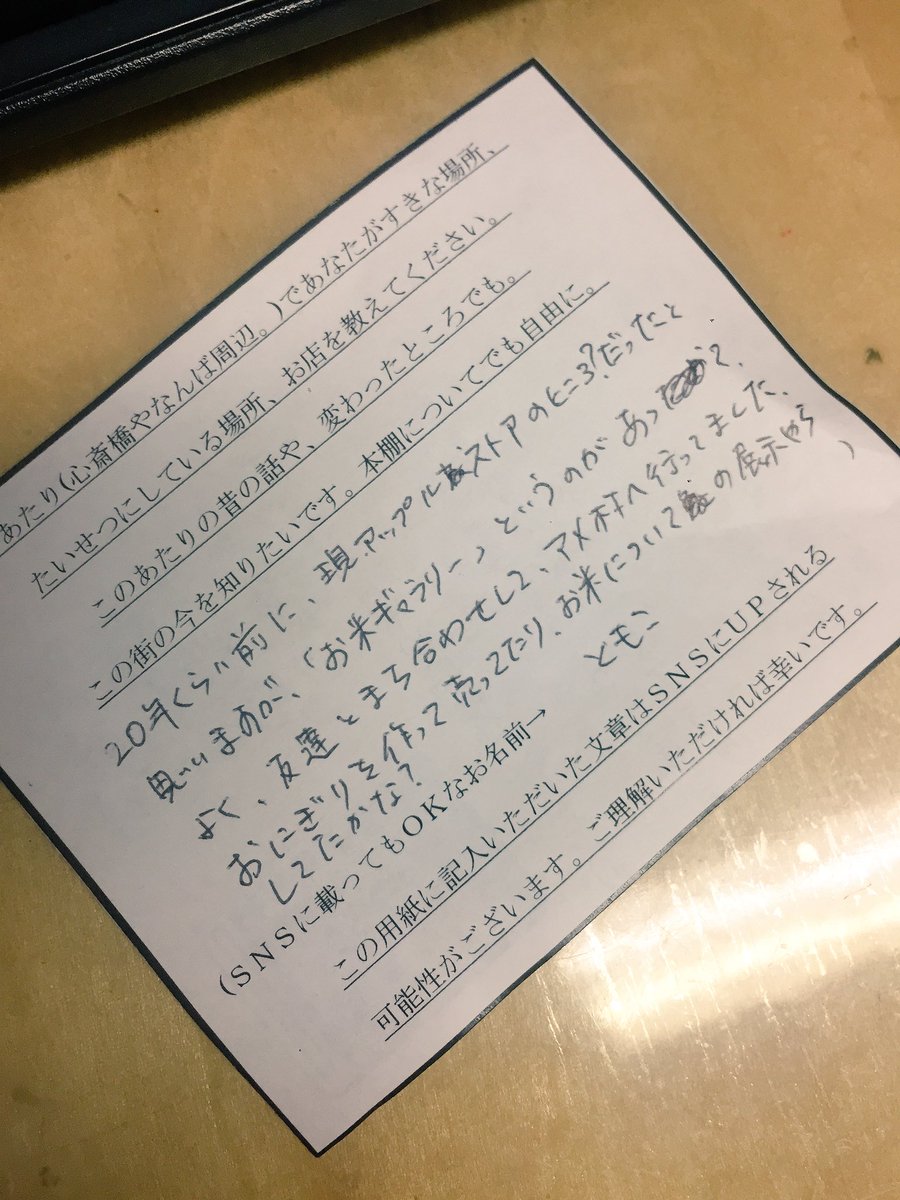 あたり(心斎橋やなんば周辺。)であなたがすきな場所、
たいせつにしている場所、お店を教えてください。
このあたりの昔の話や、変わったところでも。
この街の今を知りたいです。本棚についてでも自由に。
20年くらい前に、現アップルストアのところ?だったと
思いますが、「お米ギャラリー」というのがあって、
よく、友達とまち合わせして、アメ村へ行ってました。
おにぎりを作って売ってたり、お米についての展示やら
してたかな?
(SNSに載ってもOKなお名前→ ともこ )
この用紙に記入いただいた文章はSNSにUPされる
可能性がございます。ご理解いただければ幸いです。